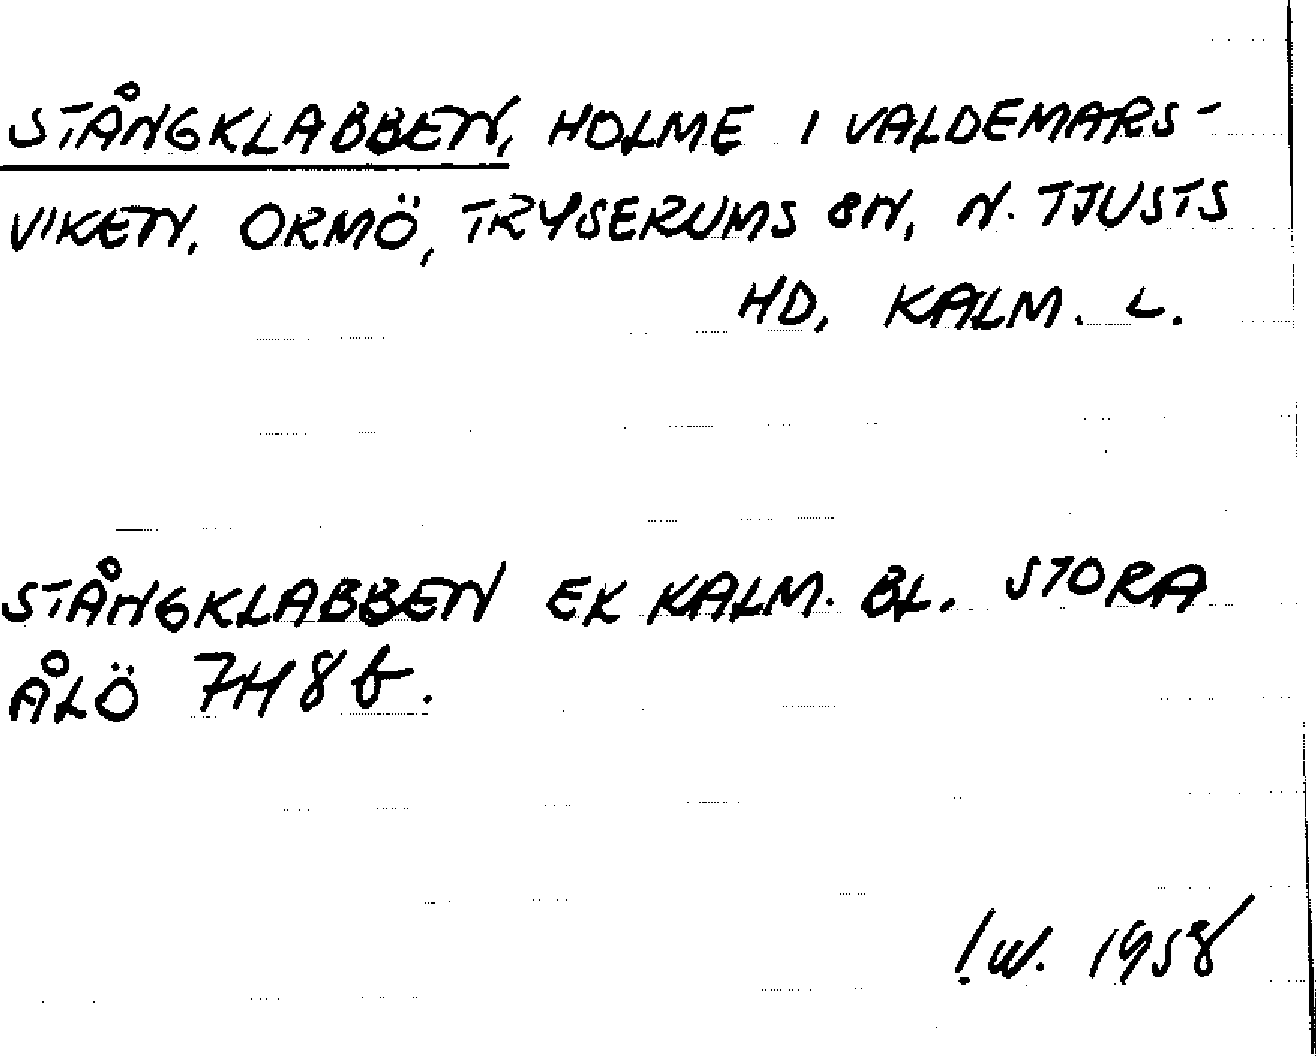 STÅNGKLABBEN, HOLME I VALDEMARS-
VIKEN, ORMÖ, TRYSERUMS SN, N. TJUSTS
HD, KALM. L.
STÅNGKLABBEN EK KALM. BL. STORA
ÅLÖ 7H8b.
I.W. 1958